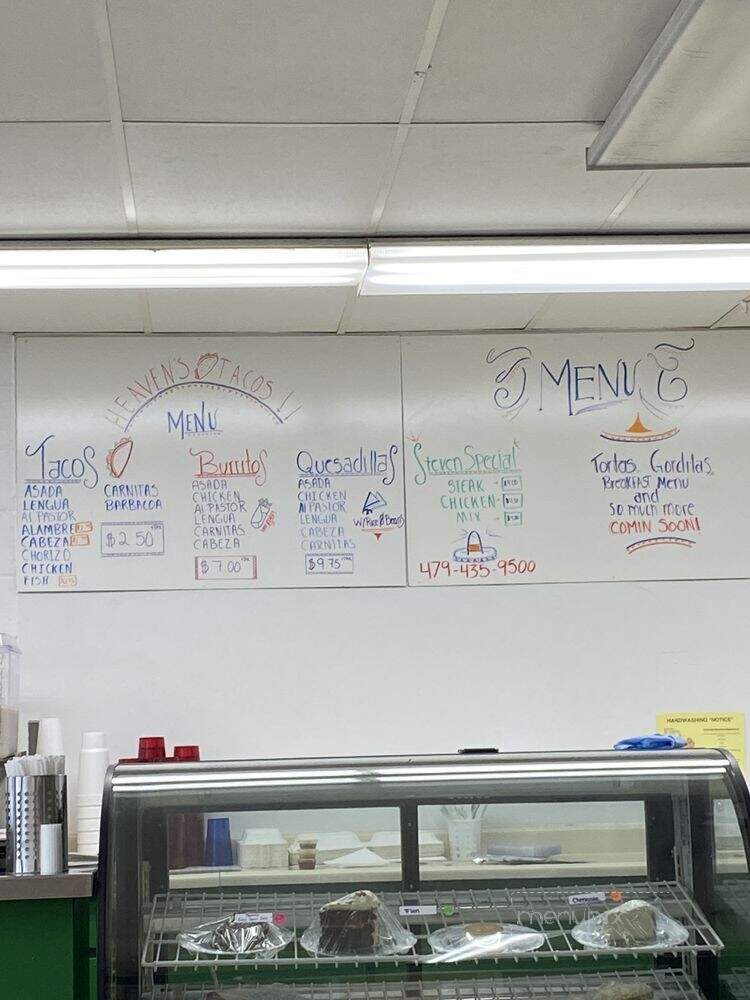 HEAVEN'S TACOS II
MENU
Tacos
ASADA
LENGUA
Al PASTOR
ALAMBRE
CABEZA
CHORIZO
CHICKEN
FISH
CARNITAS
BARBACOA
$2.50
Burritos
ASADA
CHICKEN
Al PASTOR
LENGUA
CARNITAS
CABEZA
$7.00
Quesadillas
ASADA
CHICKEN
Al PASTOR
LENGUA
CABEZA
CARNITAS
W/Rice & Beans
$9.75
MENU
Steven Special
STEAK -
CHICKEN-
MIX -
479-435-9500
Tortas, Gorditas,
Breakfast Menu
and
so much more
COMIN SOON!
HANDWASHING "NOTICE"
Flan